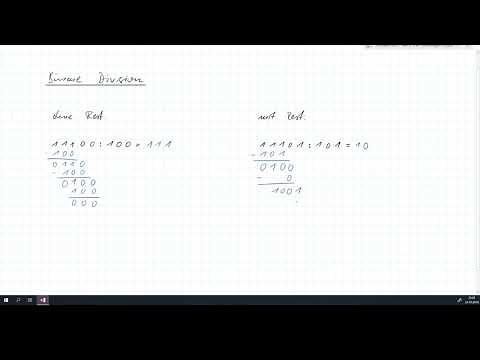 Binäre Division
ohne Rest.
11100:100=111
-100
0110
-100
0100
100
000
mit Rest.
11101:101=10
-101
0100
- 0
1001